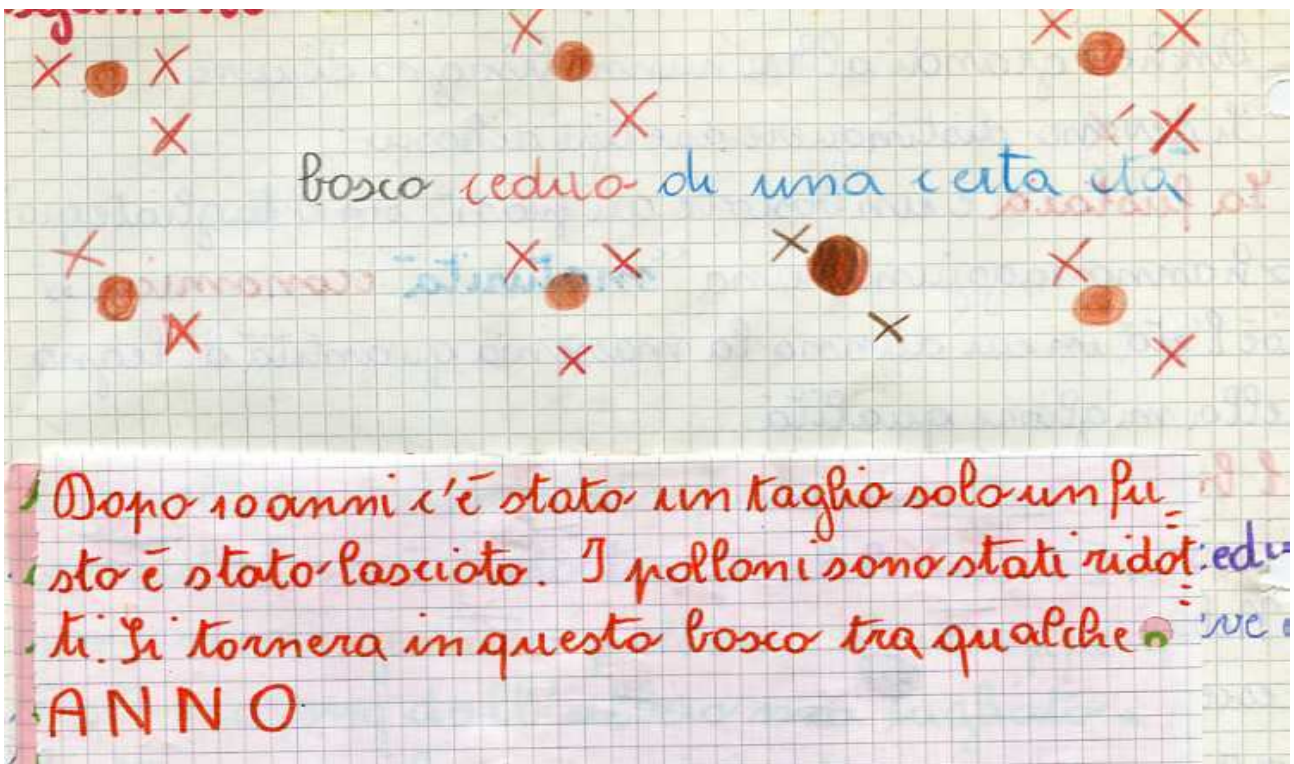 bosco ceduo di una certa età
Dopo 10 anni c'è stato un taglio solo un fu=
sto è stato lasciato. I polloni sono stati ridot=
ti. Si tornera in questo bosco tra qualche
ANNO